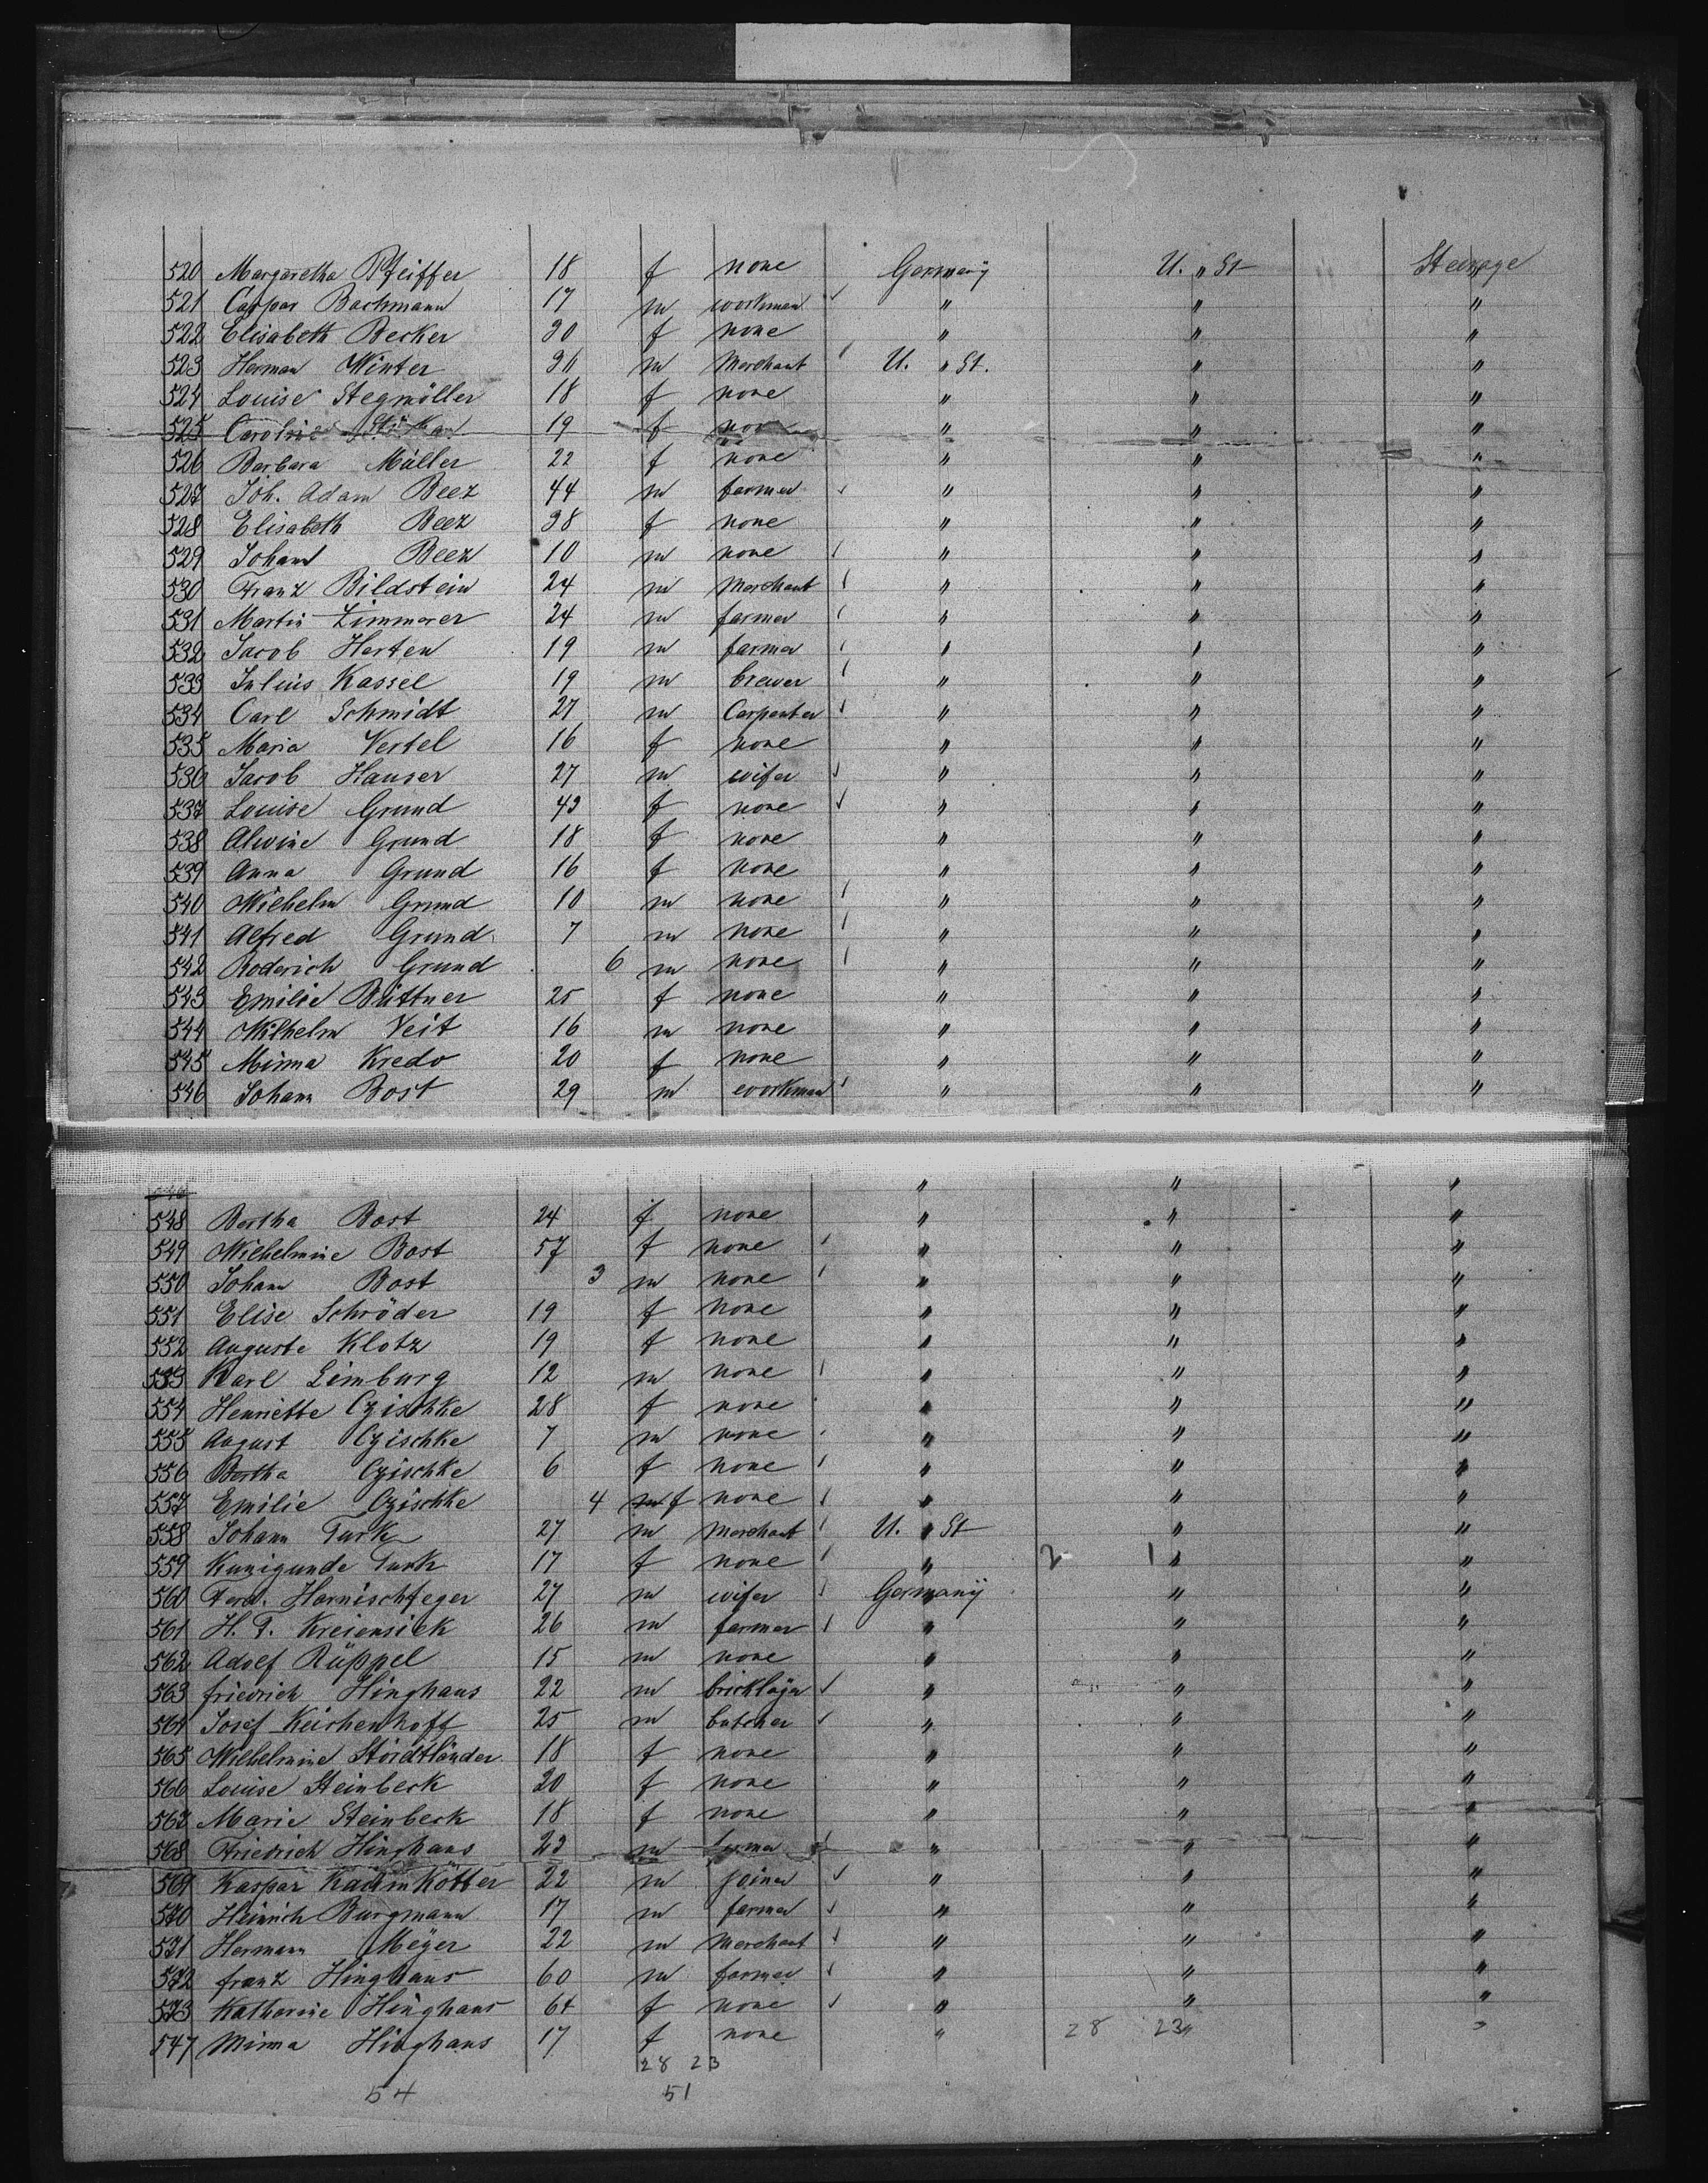 520 Margaretha Pfeiffer 18 f none Germany U. " St Steerage
521 Caspar Bachmann 17 m workman " " "
522 Elisabeth Becker 30 f none " " "
523 Herman Winter m Merchant U. " St. " "
524 Louise Stegmöller 18 f none " " "
525 19 f " " "
526 Barbara Müller 22 f none " " "
527 Joh. Adam Beez 44 m farmer " " "
528 Elisabeth Beez 38 f none " " "
529 Johann Beez 10 m none " " "
530 Franz Bildstein 24 m Merchant " " "
531 Martin Zimmerer 24 m farmer " " "
532 Jacob Herten 19 m farmer " " "
533 Julius Kassel 19 m brewer " " "
534 Carl Schmidt 27 m Carpenter " " "
535 Maria Vertel 16 f none " " "
536 Jacob Hauser 27 m wifer " " "
537 Louise Grund 43 f none " " "
538 Alwine Grund 18 f none " " "
539 Anna Grund 16 f none " " "
540 Wilhelm Grund 10 m none " " "
541 Alfred Grund 7 m none " " "
542 Roderich Grund 6 m none " " "
543 Emilie Büttner 25 f none " " "
544 Wilhelm Veit 16 m none " " "
545 Minna Kredo 20 f none " " "
546 Johann Bost 29 m workman " " "
" " "
548 Bertha Bost 24 f none " " "
549 Wilhelmine Bost 57 f none " " "
550 Johann Bost 3 m none " " "
551 Elise Schröder 19 f none " " "
552 Auguste Klotz 19 f none " " "
553 Karl Limburg 12 m none " " "
554 Henriette Czischke 28 f none " " "
555 August Czischke 7 m none " " "
556 Bertha Czischke 6 f none " " "
557 Emilie Czischke 4 m f none " " "
558 Johann Turk 27 m Merchant U. " St " "
559 Kunigunde Turk 17 f none " 2 1 " "
560 Ferd. Harnischfeger 27 m wifer Germany " "
561 H. T. Kreiensiek 26 m farmer " " "
562 Adolf Rüppel 15 m none " " "
563 friedrich Hinghaus 22 m bricklayer " " "
564 Josef Keichenhoff 25 m butcher " " "
565 Wilhelmine Stordtländer 18 f none " " "
566 Louise Steinbeck 20 f none " " "
567 Marie Steinbeck 18 f none " " "
568 Friedrich Hinghaus 23 m farmer " " "
569 Kaspar Kaumkötter 22 m joiner " " "
570 Heinrich Burgmann 17 m farmer " " "
571 Hermann Meyer 22 m Merchant " " "
572 franz Hinghaus 60 m farmer " " "
573 Katharine Hinghaus 64 f none " " "
547 Minna Hinghaus 17 f none " 28 23 " "
28 23
54 51